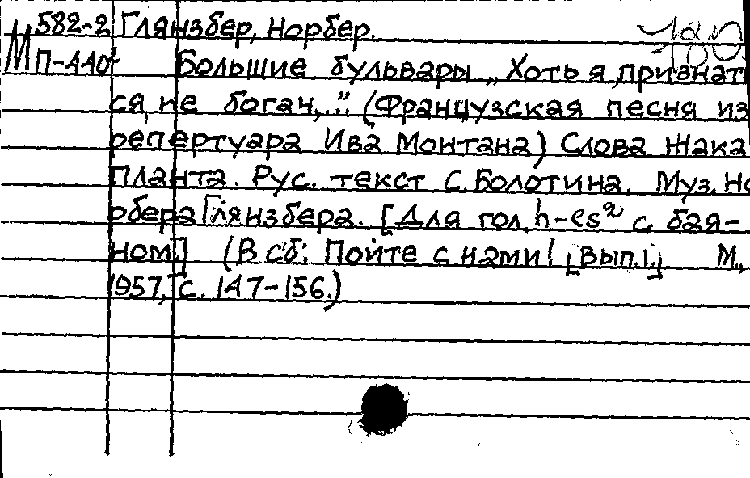 М 582-2 Глянзбер, Норбер.
П-440 Большие бульвары „Хоть я, признать
ся, не богач,.." (Французская песня из
репертуара Ива Монтана) Слова Жака
Планта. Рус. текст С. Болотина. Муз. Но
рбера Глянзбера. [Для гол. h-es² с бая-
ном] (В сб: Пойте с нами! [Вып.1.] М.,
1957, с. 147-156.)